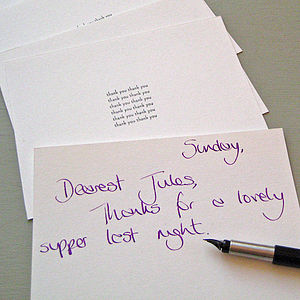 thank you thank you
thank you thank you
thank you thank you
thank you thank you
thank you thank you
thank you thank you
Sunday,
Dearest Jules,
Thanks for a lovely
supper last night.